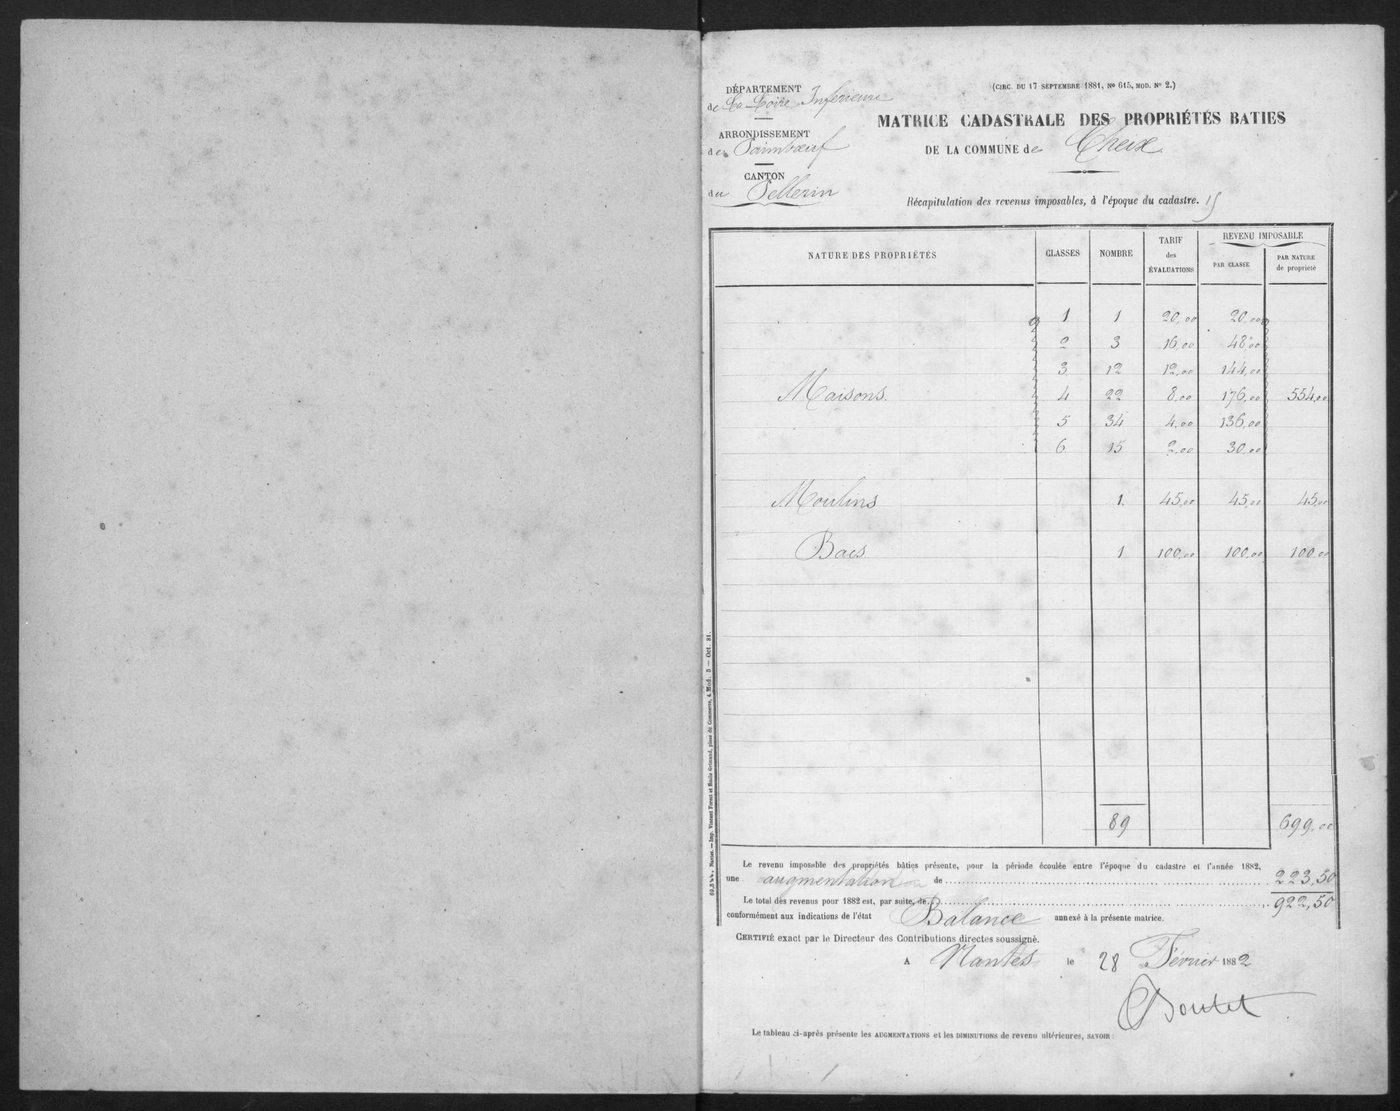 DÉPARTEMENT
de La Loire Inférieure
ARRONDISSEMENT
de Paimbœuf
CANTON
du Pellerin
(CIRC. DU 17 SEPTEMBRE 1881, No 615, MOD. No 2.)
MATRICE CADASTRALE DES PROPRIÉTÉS BATIES
DE LA COMMUNE de Cheix
Récapitulation des revenus imposables, à l'époque du cadastre.
NATURE DES PROPRIÉTÉS CLASSES NOMBRE TARIF des ÉVALUATIONS REVENU IMPOSABLE
PAR CLASSE PAR NATURE de propriété
1 1 20,00 20,00
2 3 16,00 48,00
3 12 12,00 144,00
Maisons. 4 22 8,00 176,00 554,00
5 34 4,00 136,00
6 15 2,00 30,00
Moulins 1 45,00 45,00 45,00
Bacs 1 100,00 100,00 100,00
89 699,00
Le revenu imposable des propriétés bâties présente, pour la période écoulée entre l'époque du cadastre et l'année 1882,
une augmentation de 223,50
Le total des revenus pour 1882 est, par suite, de 922,50
conformément aux indications de l'état Balance annexé à la présente matrice.
CERTIFIÉ exact par le Directeur des Contributions directes soussigné.
A Nantes le 28 Février 1882
Boutet
Le tableau ci-après présente les AUGMENTATIONS et les DIMINUTIONS de revenu ultérieures, SAVOIR :
Nantes. — Imp. Vincent Forest et Émile Grimaud, place du Commerce, 4. Mod. 5 — Oct. 81.